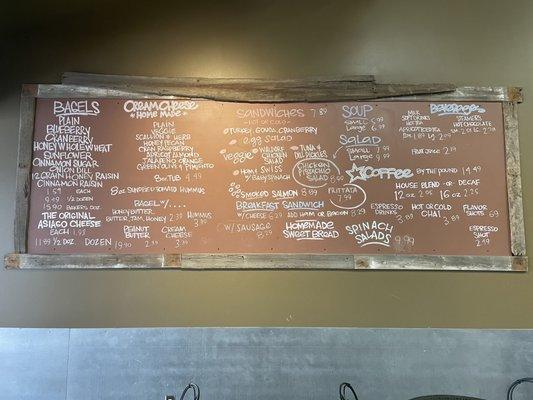 BAGELS
PLAIN
BLUEBERRY
CRANBERRY
HONEY WHOLE WHEAT
SUNFLOWER
CINNAMON SUGAR
ONION DILL
12 GRAIN HONEY RAISIN
CINNAMON RAISIN
EACH
1/2 DOZ.
15.90 BAKERS DOZ.
THE ORIGINAL
ASIAGO CHEESE
EACH 1.99
11.99 1/2 DOZ. DOZEN 19.90
CREAM CHEESE
HOME MADE
PLAIN
VEGGIE
SCALLION & HERB
HONEY PECAN
CRAN RASPBERRY
APRICOT ALMOND
JALAPENO ORANGE
GREEN OLIVE & PIMENTO
8oz TUB 4.99
8oz SUNDRIED TOMATO HUMMUS
BAGEL W/...
HONEY BUTTER
BUTTER, JAM, HONEY 2.39
HUMMUS 3.29
PEANUT BUTTER 2.99
CREAM CHEESE 3.29
SANDWICHES 7.89
HOT OR COLD
TURKEY, GOUDA, CRANBERRY
egg salad
veggie
WALDORF CHICKEN SALAD
TUNA & DILL PICKLES
HAM & SWISS
W/ BABY SPINACH
CHICKEN PISTACHIO SALAD 8.99
SMOKED SALMON 8.99
BREAKFAST SANDWICH
W/ CHEESE 6.29 ADD HAM OR BACON 8.29
W/ SAUSAGE 8.29
HOMEMADE
SWEET BREAD
FRITTATA
SOUP
SMALL
LARGE 6.99
SALAD
MEDIUM 7.99
LARGE
SPINACH
SALADS
9.99
BEVERAGES
MILK
SOFT DRINKS
HOT TEA
APRICOT ICED TEA
STEAMERS
HOT CHOCOLATE
FRUIT JUICE 2.19
COFFEE
BY THE POUND 14.49
HOUSE BLEND OR DECAF
12 oz 2.25 16 oz 2.75
ESPRESSO DRINKS 3.69
HOT OR COLD CHAI 3.69
FLAVOR SHOTS 69
ESPRESSO SHOT 2.49